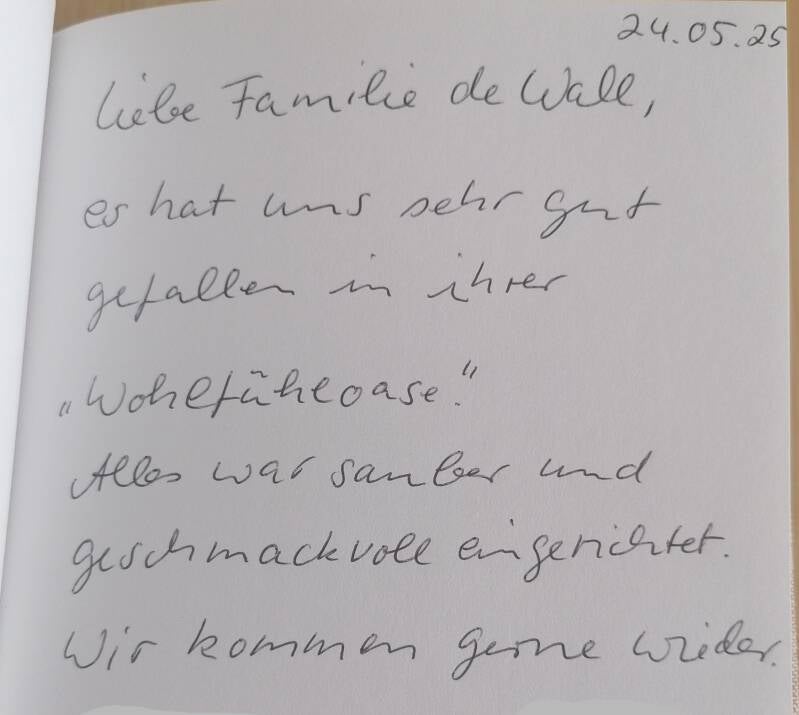 24.05.25
Liebe Familie de Wall,
es hat uns sehr gut
gefallen in ihrer
„Wohlfühloase."
Alles war sauber und
geschmackvoll eingerichtet.
Wir kommen gerne wieder.